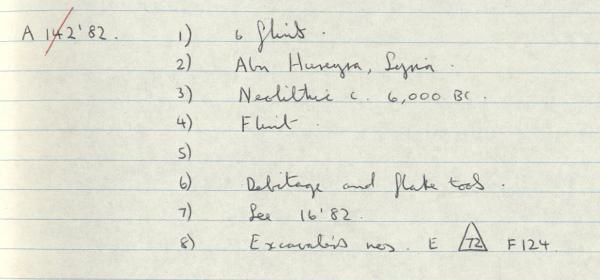 A 142'82. 1) 6 flints.
2) Abu Hureyra, Syria.
3) Neolithic c. 6,000 BC.
4) Flint.
5)
6) Debitage and flake tools.
7) See 16'82.
8) Excavators nos. E 72 F124